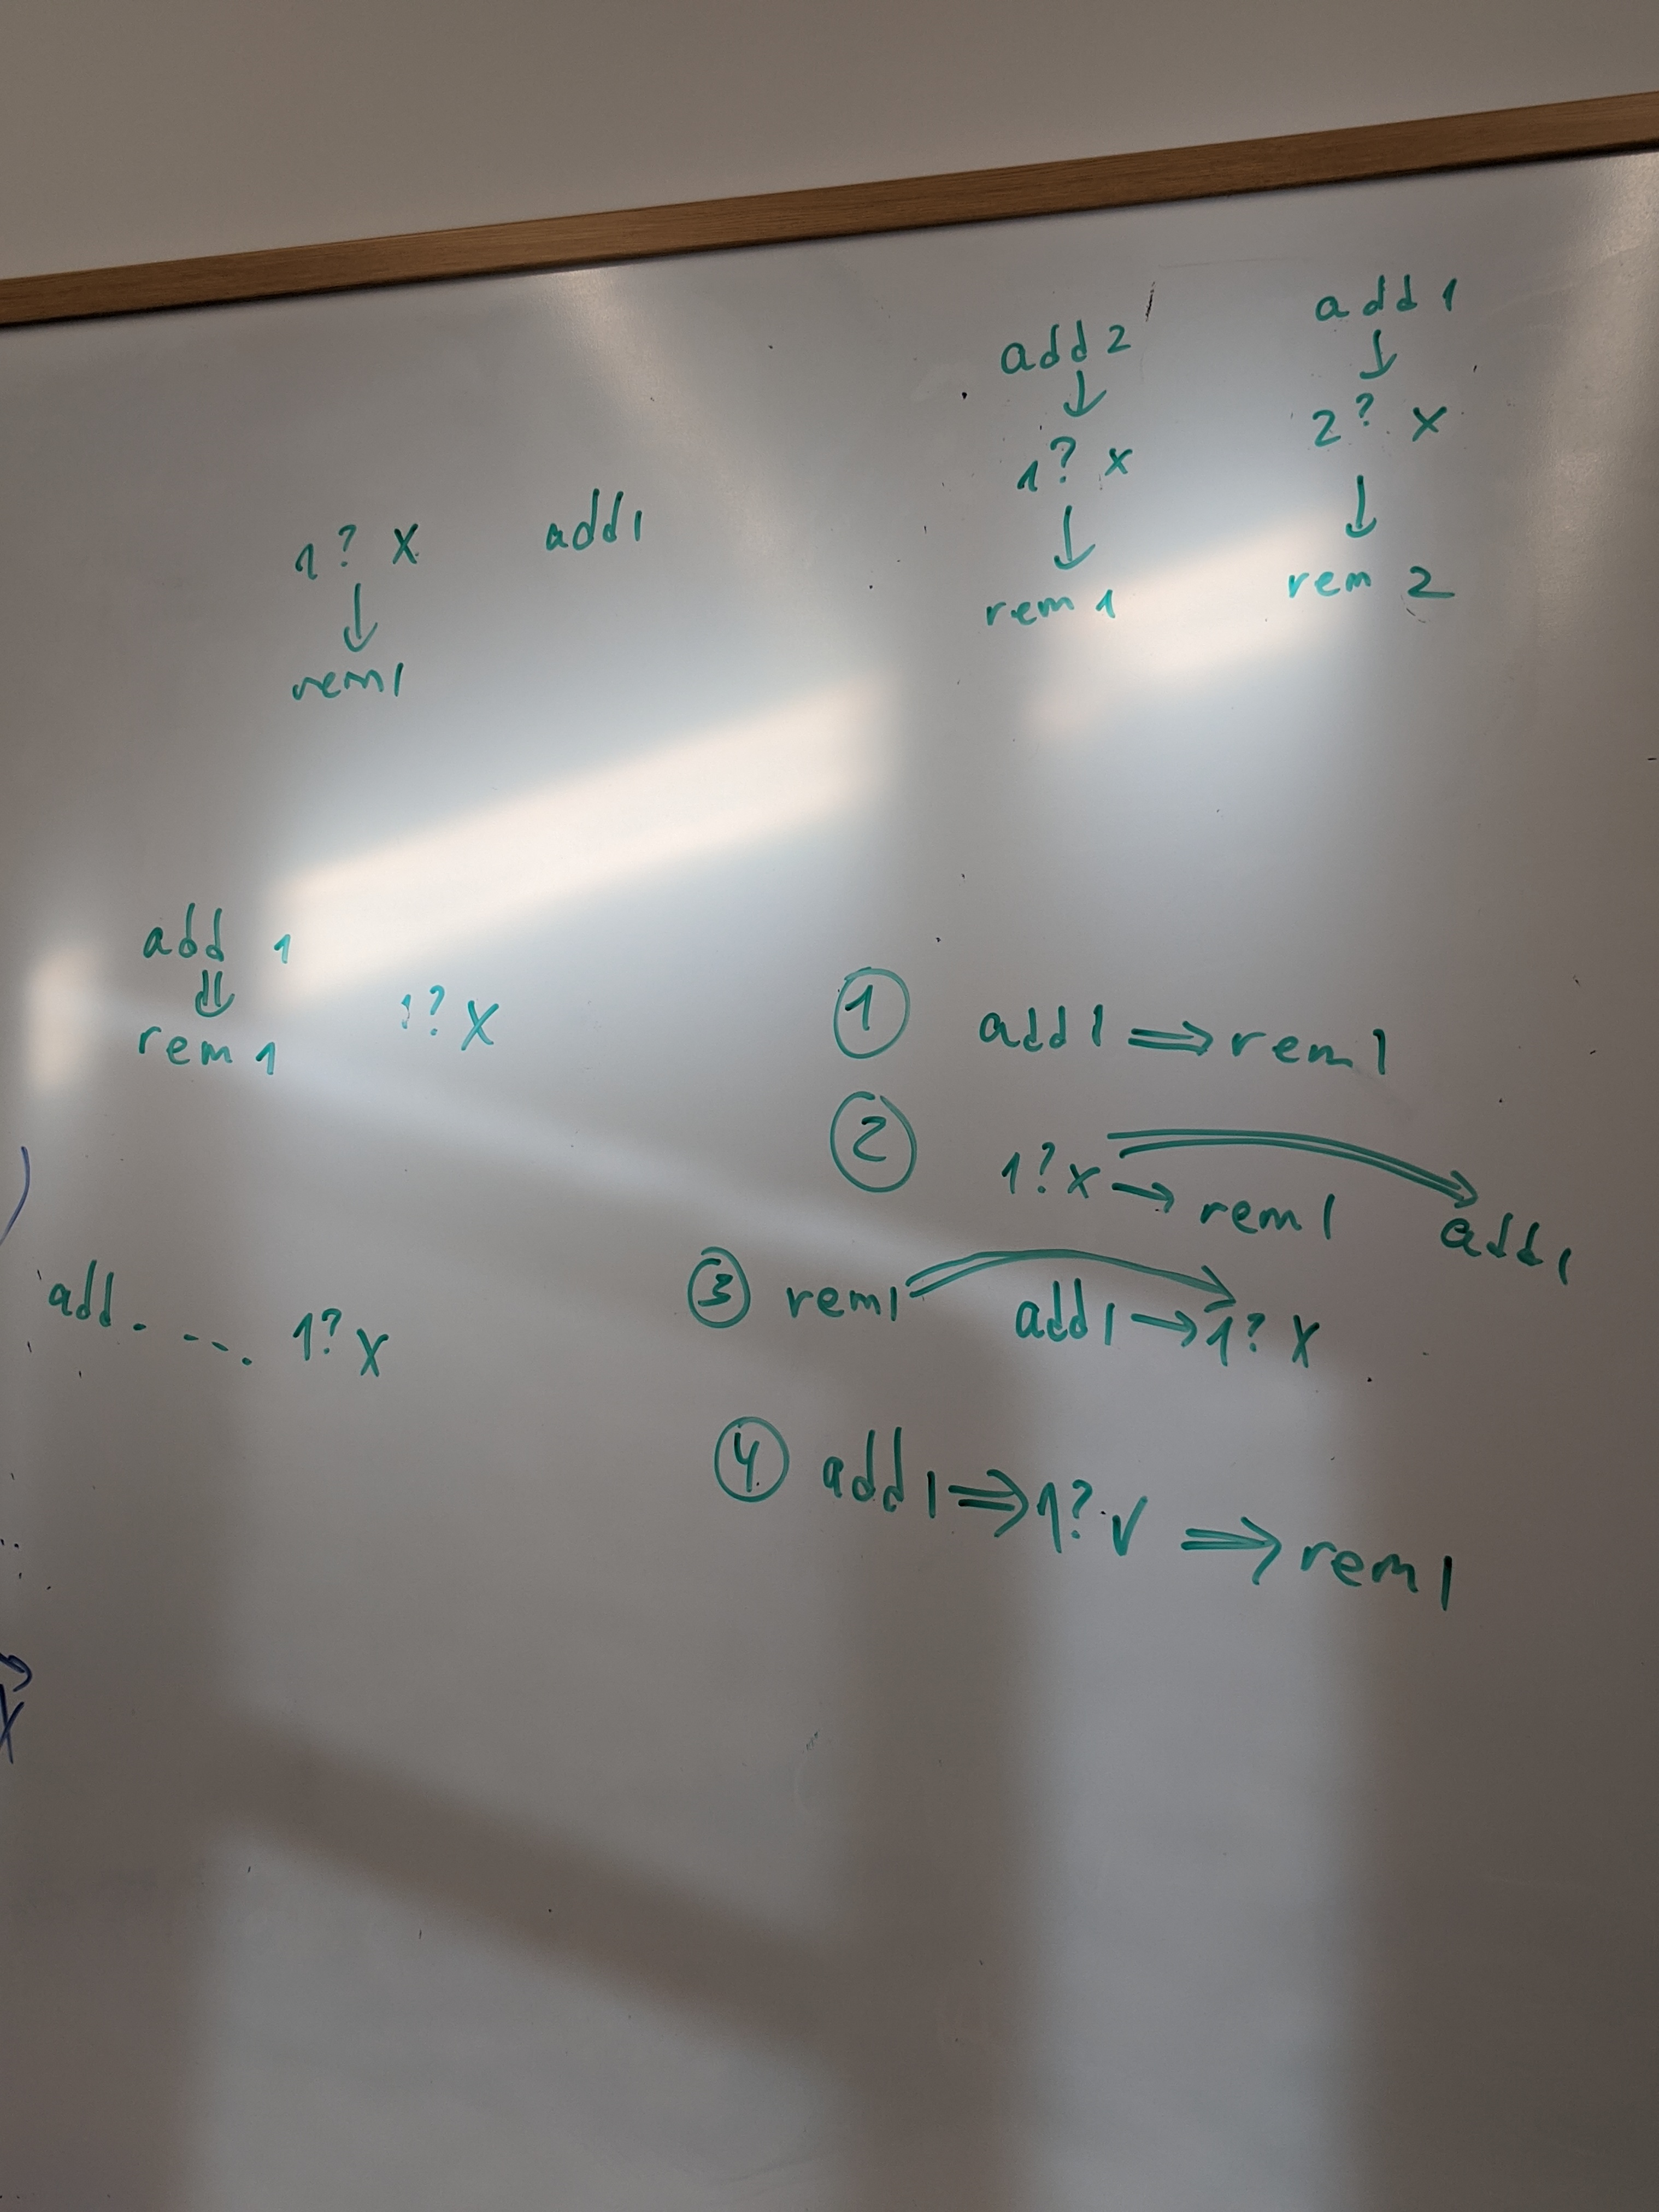 add 2
↓
1? x
↓
rem 1
add 1
↓
2? x
↓
rem 2
1? X
↓
rem 1
add 1
add 1
⇓
rem 1
1? X
add. - -. . 1? X
① add 1 ⇒ rem 1
② 1? x → rem 1 ⇒ add 1
③ rem 1 ⇒ add 1 → 1? X
④ add 1 ⇒ 1? √ ⇒ rem 1